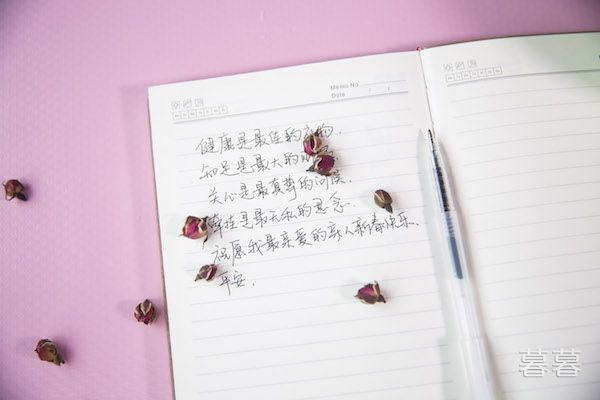 Memo No
Date / /
健康是最佳的礼物,
知足是最大的
关心是最真挚的问候,
牵挂是最无私的思念.
祝愿我最亲爱的亲人新春快乐,
平安.
暮暮